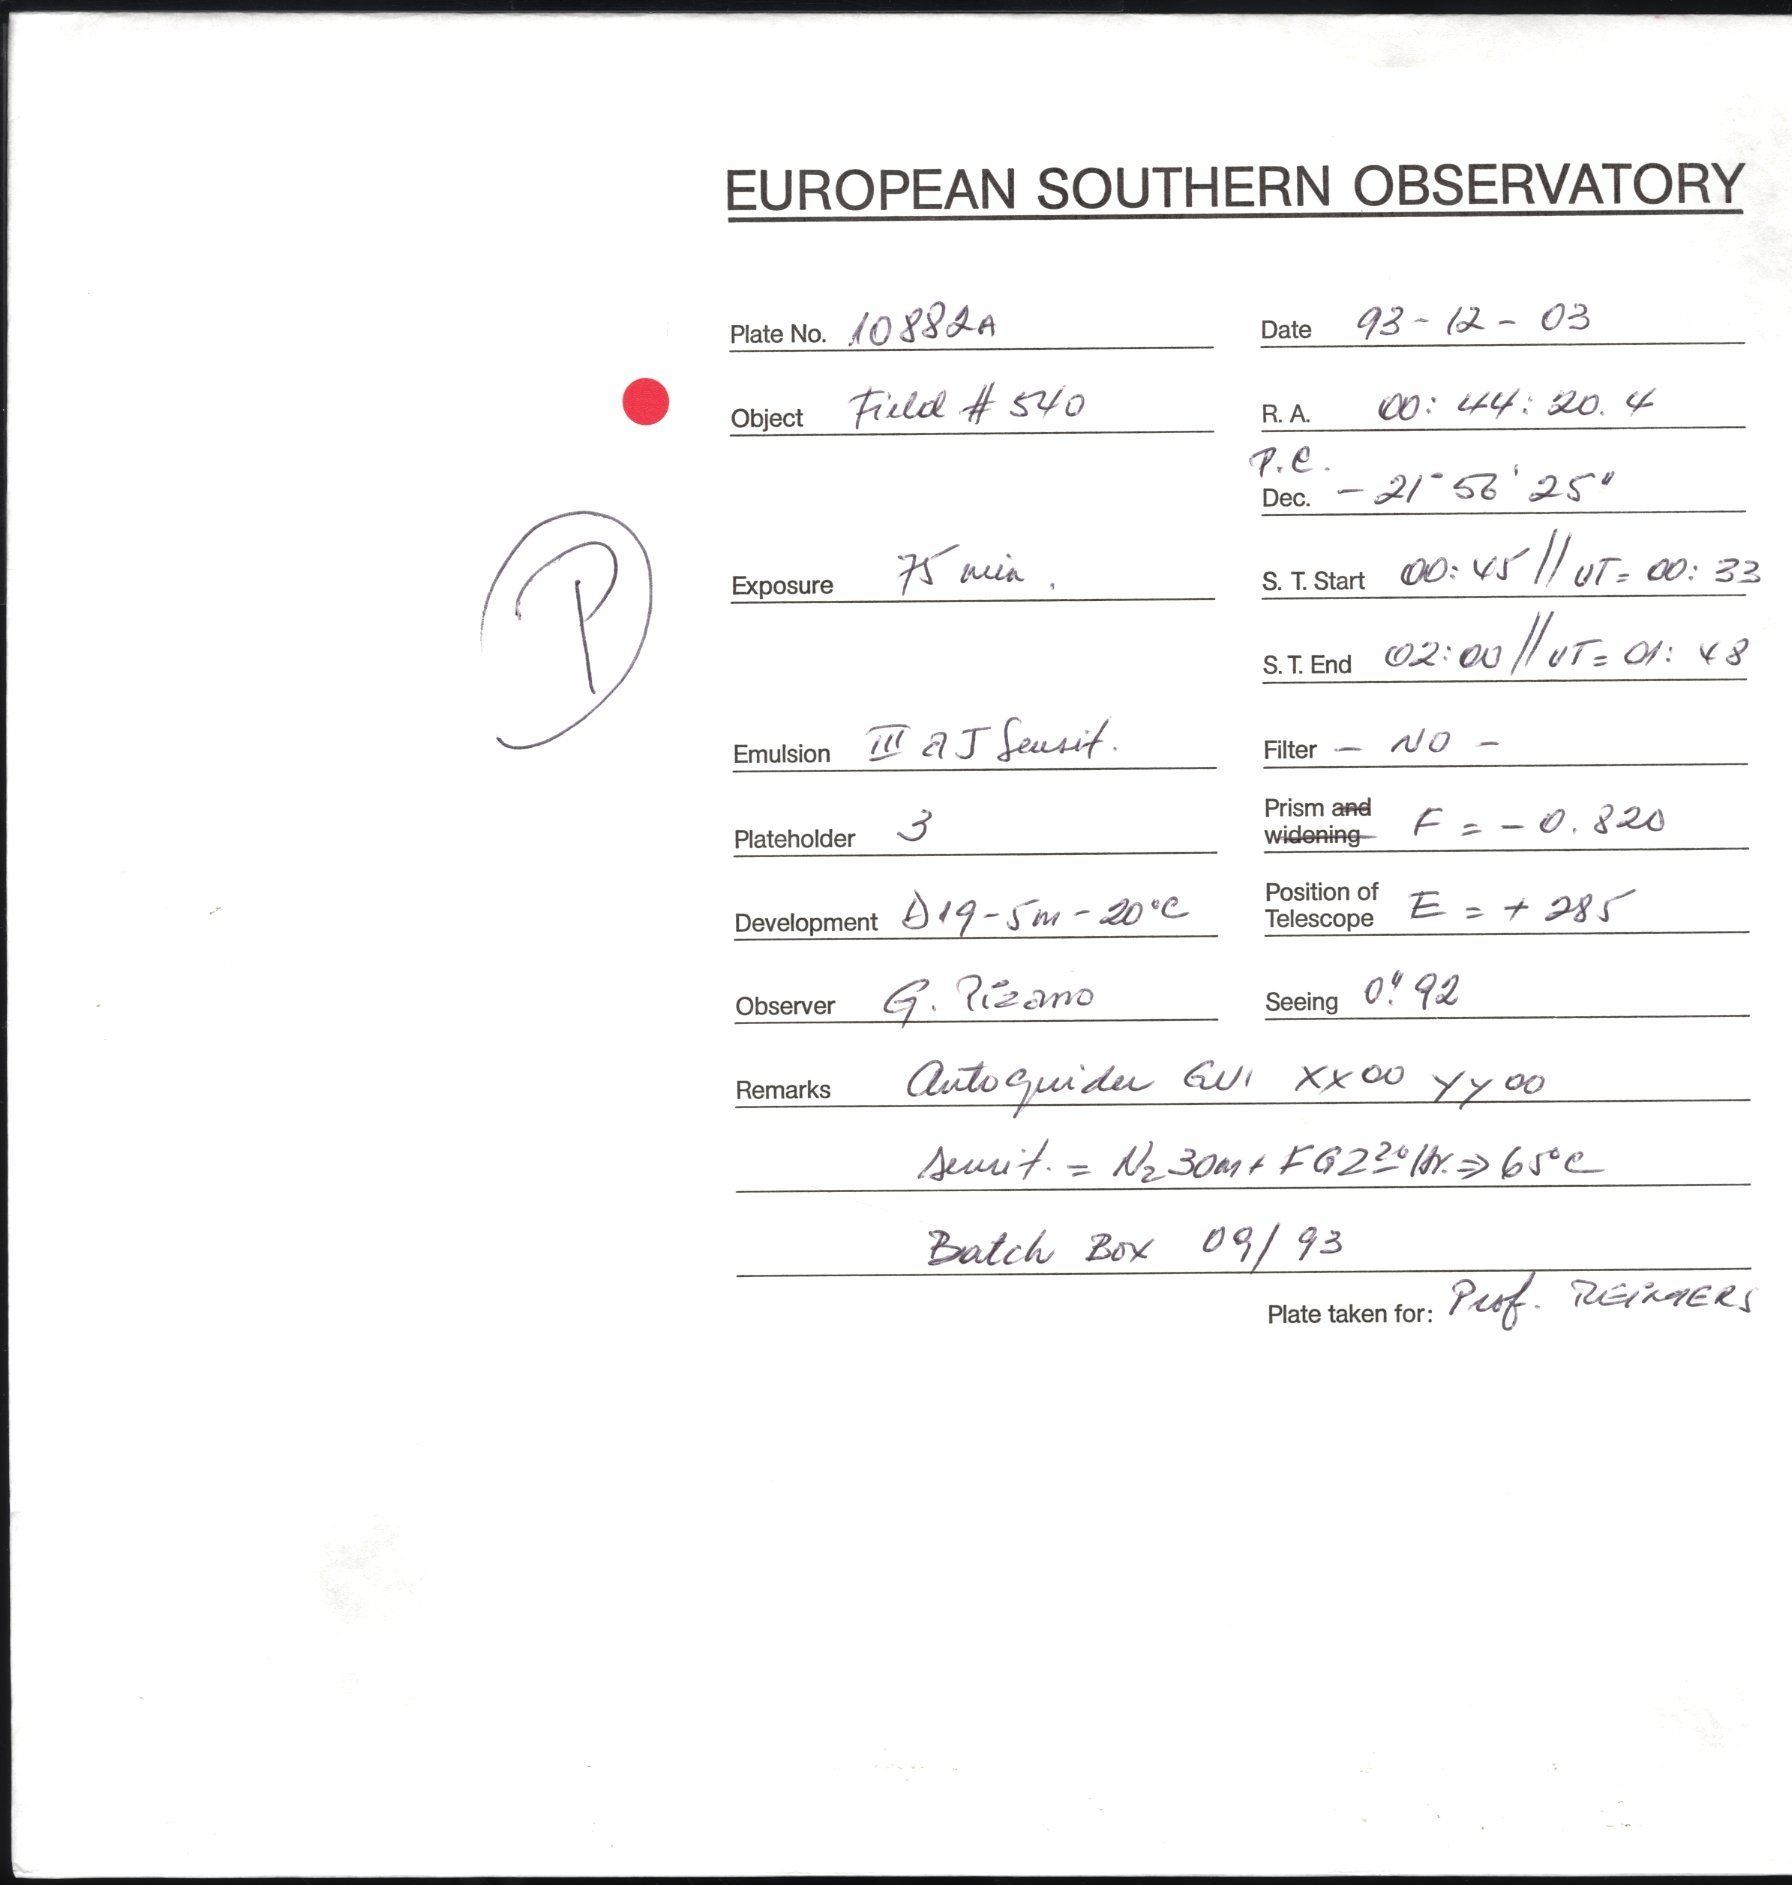 EUROPEAN SOUTHERN OBSERVATORY
Plate No. 10882A Date 93-12-03
Object Field # 540 R. A. 00: 44: 20. 4
P.C.
Dec. - 21° 56' 25"
Exposure 75 min. S. T. Start 00: 45 // UT= 00: 33
S. T. End 02:00 // UT= 01: 48
P
Emulsion III a J Sensit. Filter - NO -
Plateholder 3 Prism and widening F = - 0.820
Development D19-5m-20°C Position of Telescope E = + 285
Observer G. Pizarro Seeing 0".92
Remarks Autoguider GUI XX00 YY00
Sensit. = N2 30m + FG2 Hr. ⇒ 65°C
Batch Box 09/93
Plate taken for: Prof. REIMERS